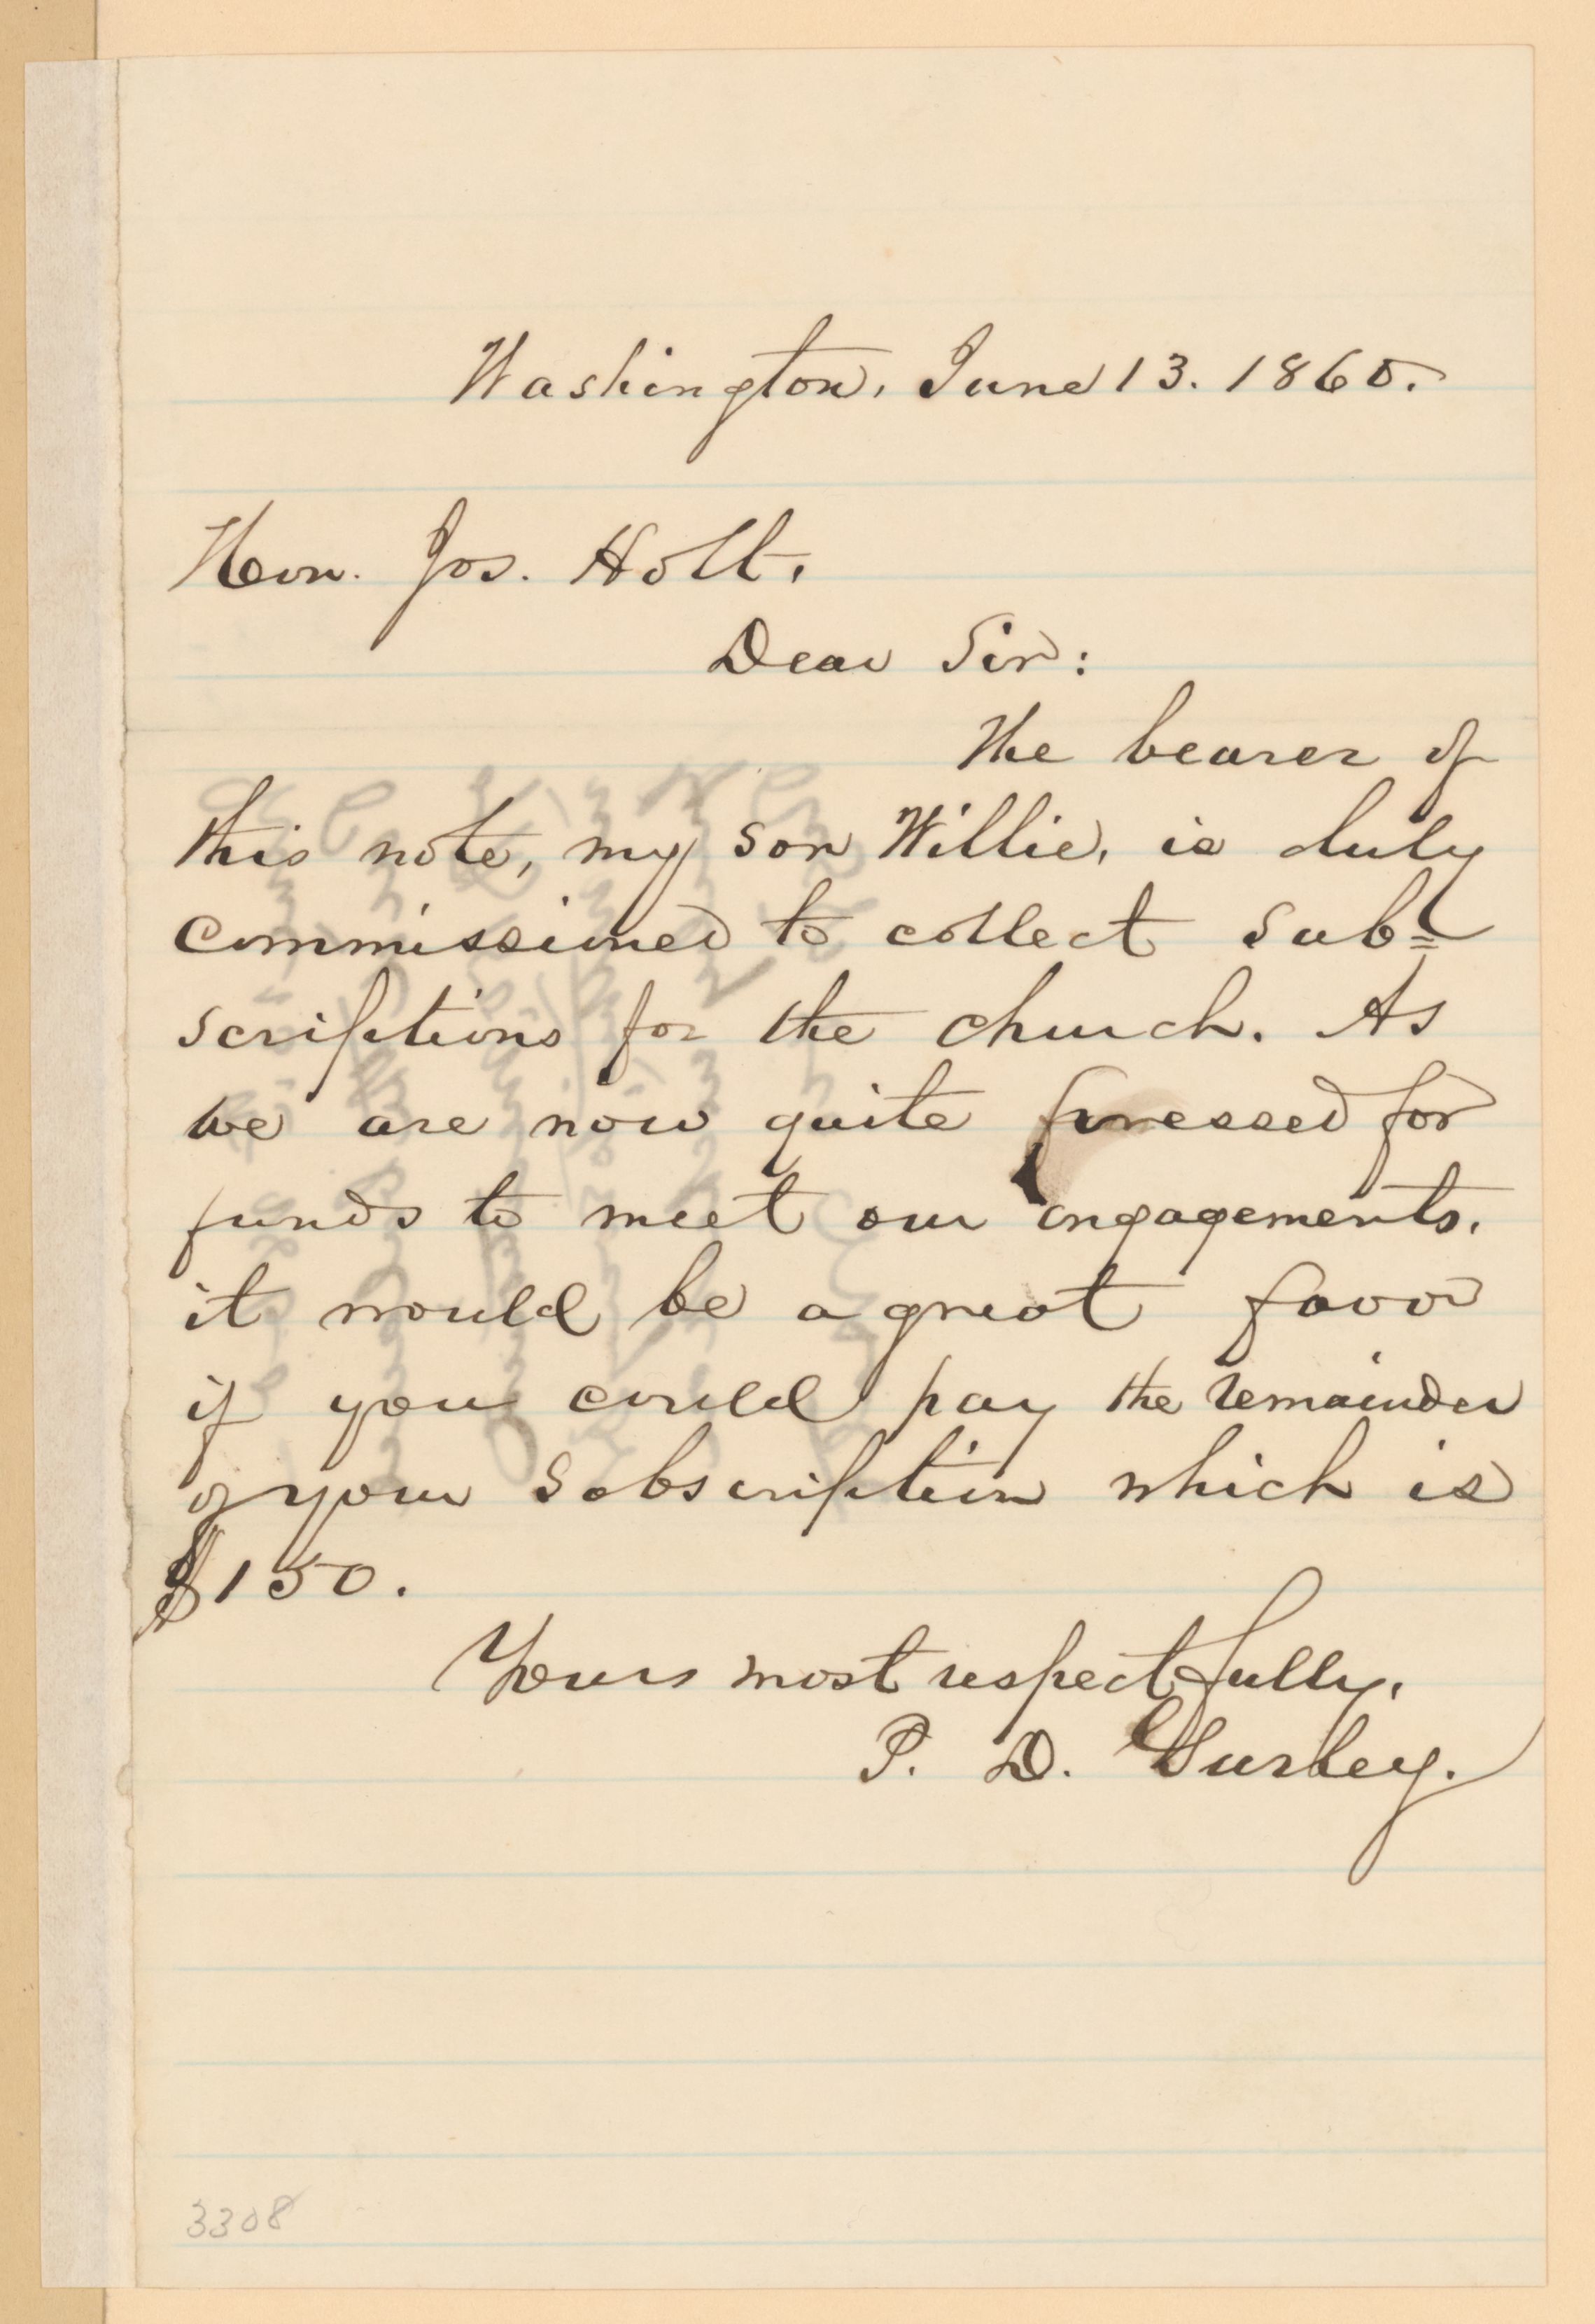 Washington, June 13. 1860.
Hon. Jos. Holt.
Dear Sir:
The bearer of
this note, my son Willie, is duly
commissioned to collect sub=
scriptions for the church. As
we are now quite pressed for
funds to meet our engagements,
it would be a great favor
if you could pay the remainder
of your subscription which is
$150.
Yours most respectfully,
P. D. Gurley.
3308